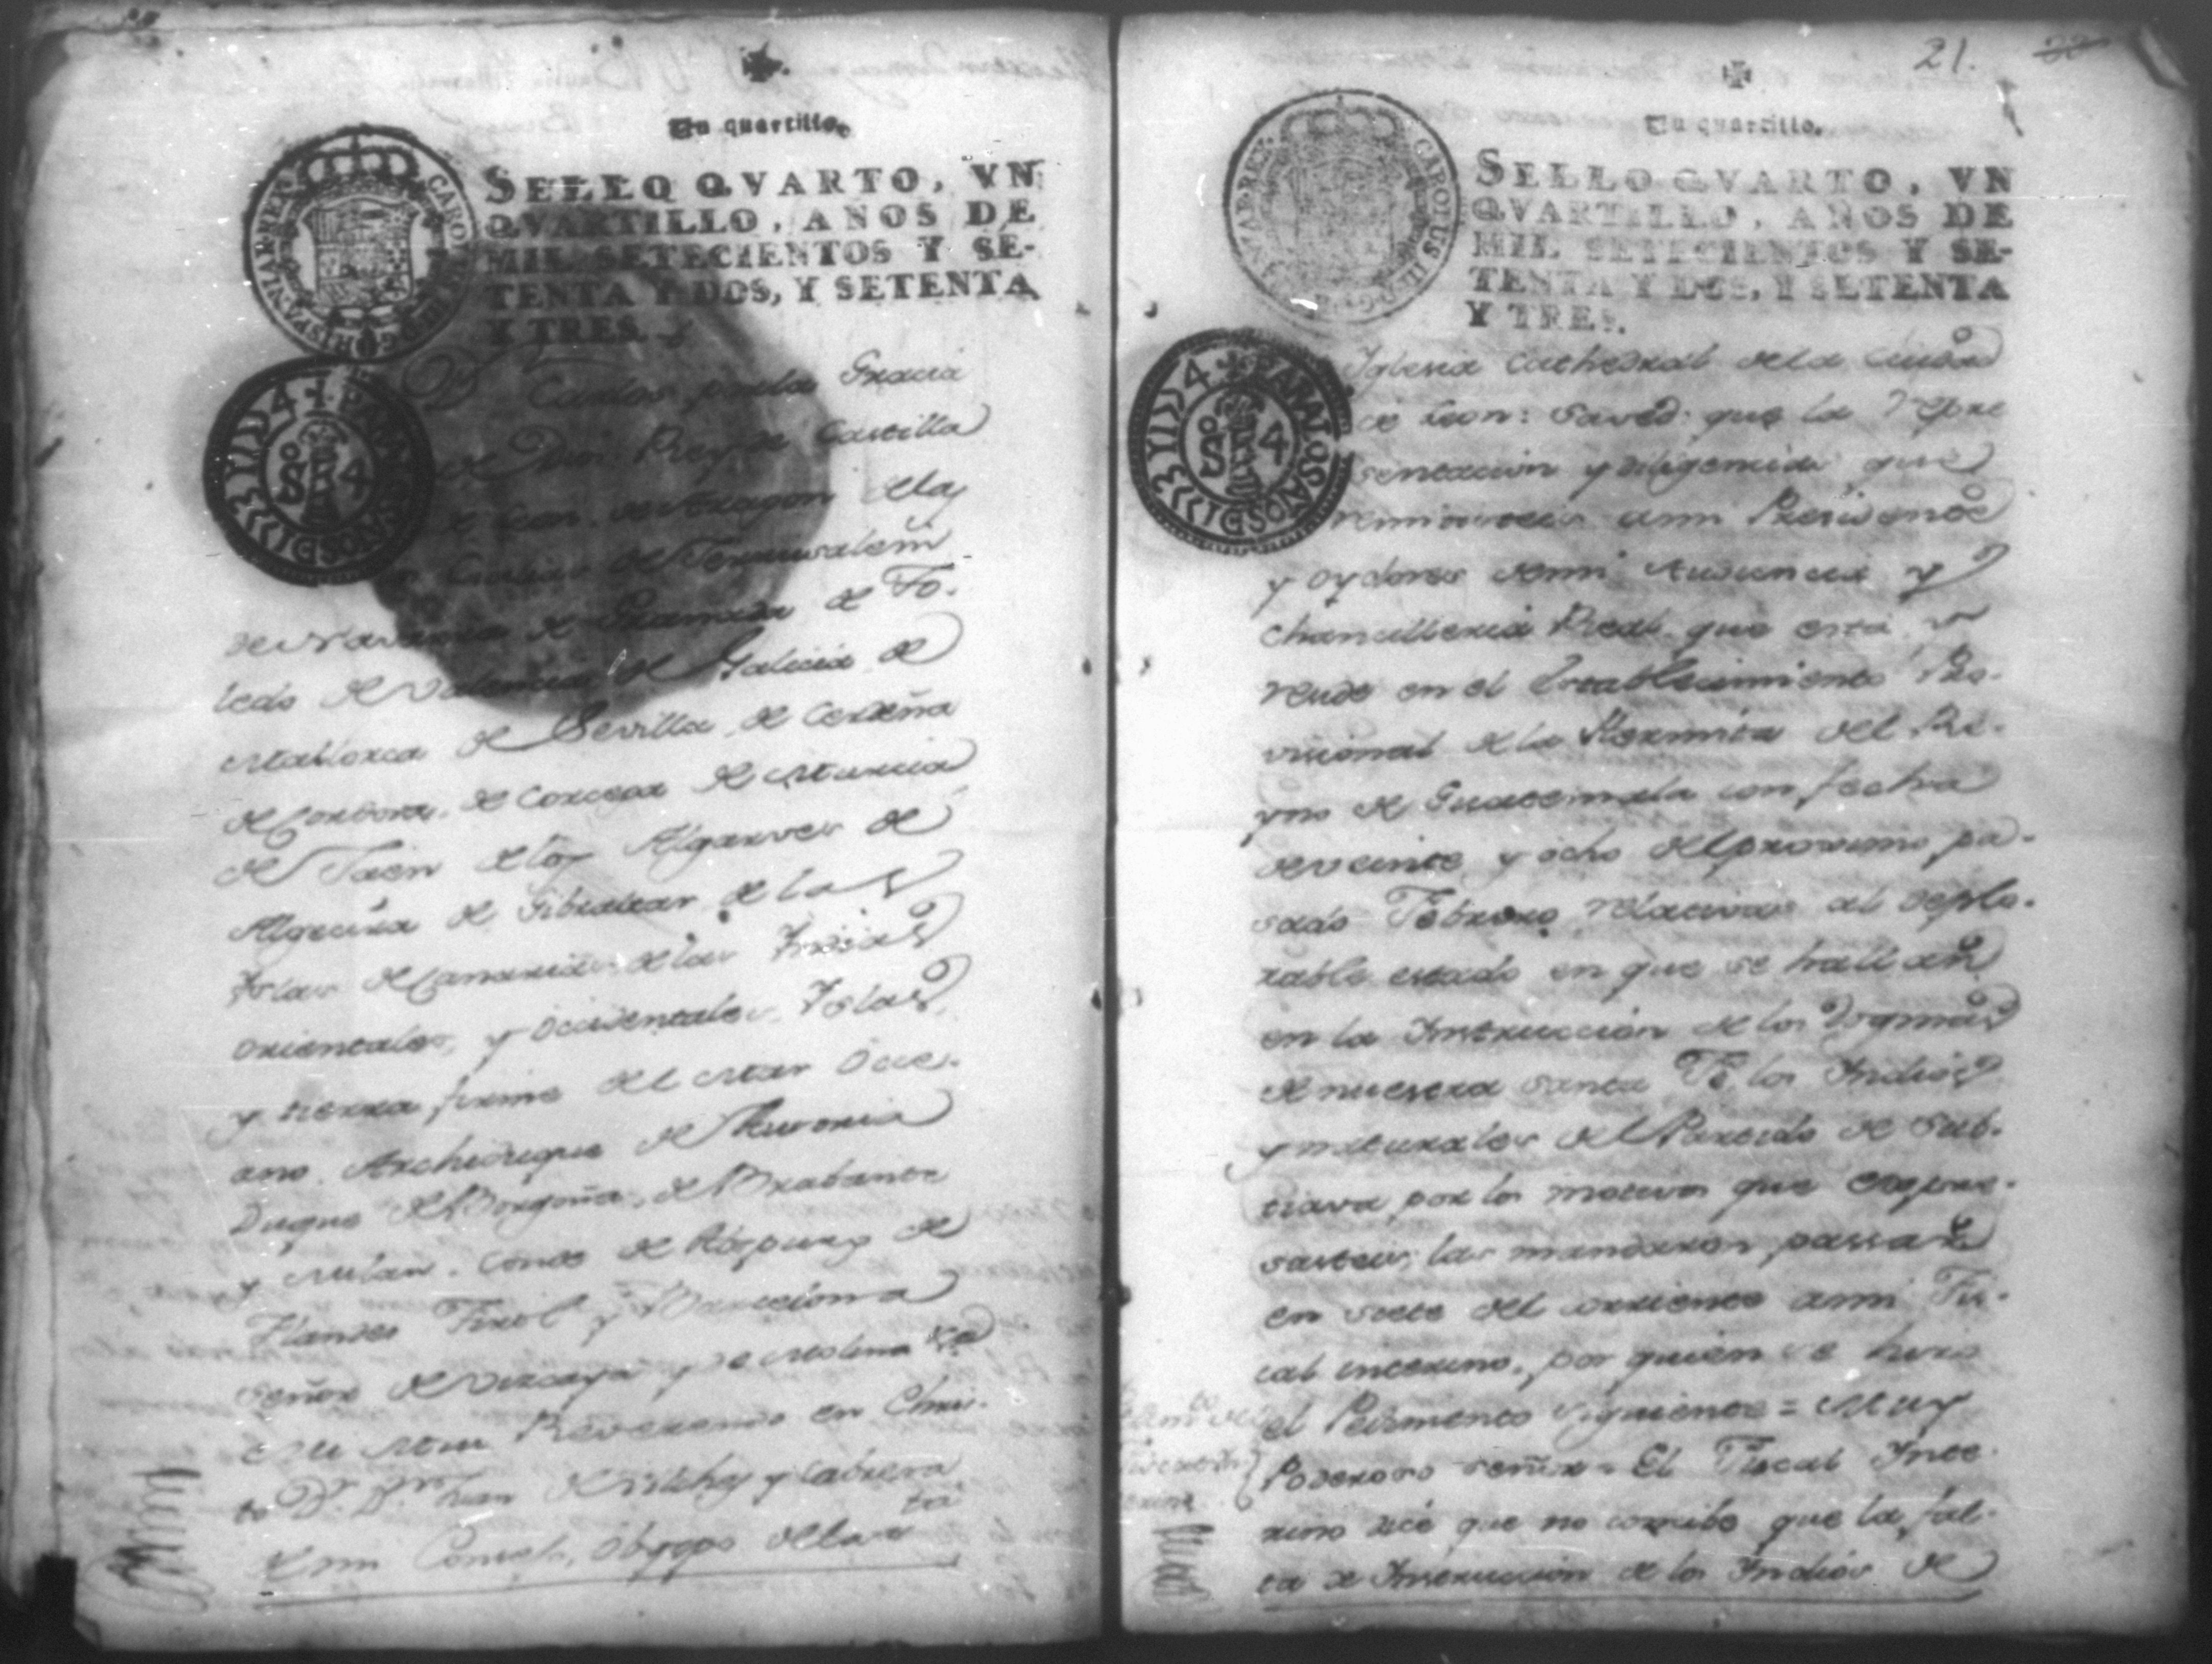 Un quartillo.
SELLO QVARTO, VN
QVARTILLO, AÑOS DE
MIL SETECIENTOS Y SE-
TENTA Y DOS, Y SETENTA
Y TRES.
Dn Carlos por la Gracia
de Dios Rey de Castilla
de Leon, de Aragon delas
Cicilias de Jerusalem
de Navarra de Granada de To-
ledo de Valencia de Galicia de
Mallorca de Sevilla de Cerdeña
de Cordova, de Corcega de Murcia
de Jaen delos Algarves de
Algecira de Gibraltar de las
Yslas de Canarias delas Yndias
Orientales, y Occidentales Yslas
y tierra firme del Mar Oce-
ano Archiduque de Austria
Duque de Borgoña, de Brabante
y Milan, Conde de Abspurg de
Flandes Tirol y Barcelona
Señor de Vizcaya y de Molina &a
Mui Reverendo en Chris-
to Pe. Dn. Juan de Vilches y Cabrera
de mi Consejo, Obispo dela Sta
21. 22
Un quartillo.
SELLO QVARTO, VN
QVARTILLO, AÑOS DE
MIL SETECIENTOS Y SE-
TENTA Y DOS, Y SETENTA
Y TRES.
Yglesia Cathedral dela Ciudad
de Leon: Saved que la repre
sentacion y diligencias que
remitisteis ami Presidente
y oydores demi Audiencia y
Chancilleria Real que está y
recide en el Establecimiento Pro-
visional dela Hermita del Re-
yno de Guatemala con fecha
deveinte y ocho del proximo pa-
sado Febrero relativas al deplo-
rable estado en que se hallan
en la Ynstruccion delos Dogmas
denuestra Santa Fé los Yndios
y naturales del Partido de Sub-
tiava por los motivos que expre-
sasteis, las mandaron passar
en siete del corriente ami Fis-
cal interino, por quien se hizo
el Pedimento siguiente = Muy
Poderoso Señor = El Fiscal Ynte-
rino dice que no concibe que la fal-
ta de Ynstruccion delos Yndios de